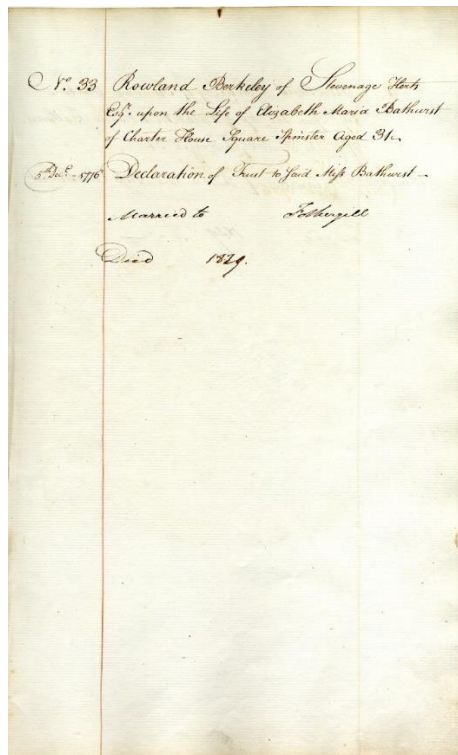 No. 33 Rowland Berkeley of Stevenage Herts
Esqr. upon the Life of Elizabeth Maria Bathurst
of Charter House Square Spinster Aged 31
5th Decr. 1776 Declaration of Trust to said Miss Bathurst
Married to Fothergill
Died 1829.